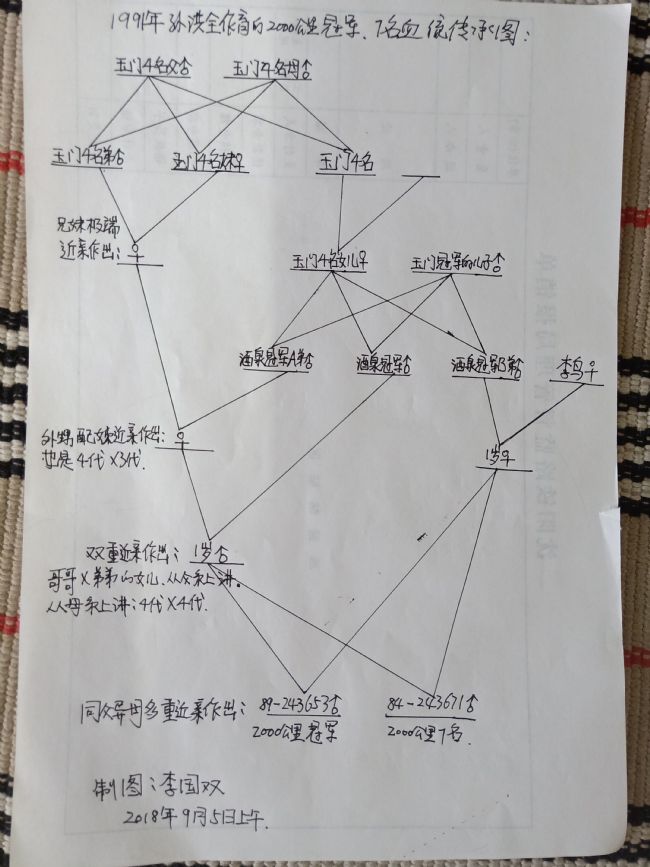 1991年孙洪全作育的2000公里冠军、7名血统传承图:
玉门4名父♂ 玉门4名母♂
玉门4名弟♂ 玉门4名妹♀ 玉门4名
兄妹极端
近亲作出: ♀
玉门4名女儿♀ 玉门冠军的儿子♂
酒泉冠军A弟♂ 酒泉冠军♂ 酒泉冠军B弟♂ 李鸟♀
外甥配姨近亲作出: ♀
也是4代X3代. 1岁♀
双重近亲作出: 1岁♂
哥哥X弟弟的女儿、从父系上讲。
从母系上讲:4代X4代.
同父异母多重近亲作出: 89-243653♂ 84-243671♂
2000公里冠军 2000公里7名
制图:李国双
2018年9月5日上午.